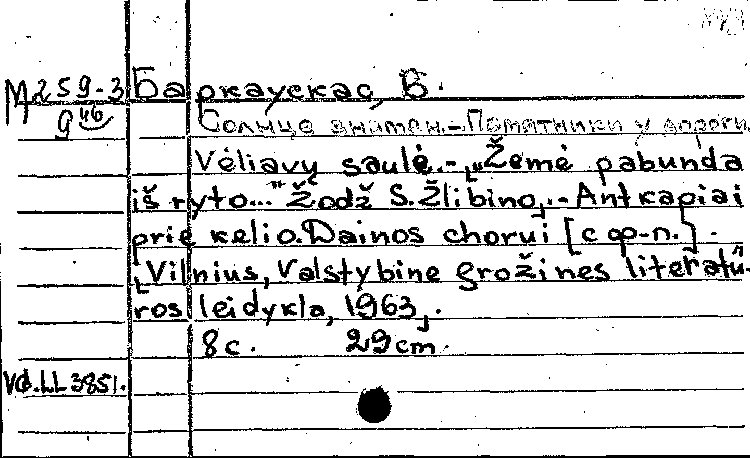 М259-3 Баркаускас, В.
9 46
Солнце знамен.-Памятники у дороги.
Vėliavų saulė.-„Žemė pabunda
iš ryto..." Žodž S. Žlibino.- Antkapiai
prie kelio. Dainos chorui [с ф-п.].
Vilnius, Valstybine grožines literatū-
ros leidykla, 1963.
8 с. 29 cm.
Vd.LL 3851.